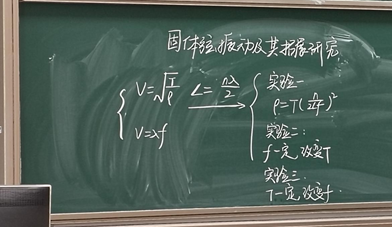 固体弦振动及其探索研究
V=√(T/ρ)
L=nλ/2
V=λf
实验一
ρ=T(n/2Lf)²
实验二:
f一定,改变T
实验三
T一定,改变f.